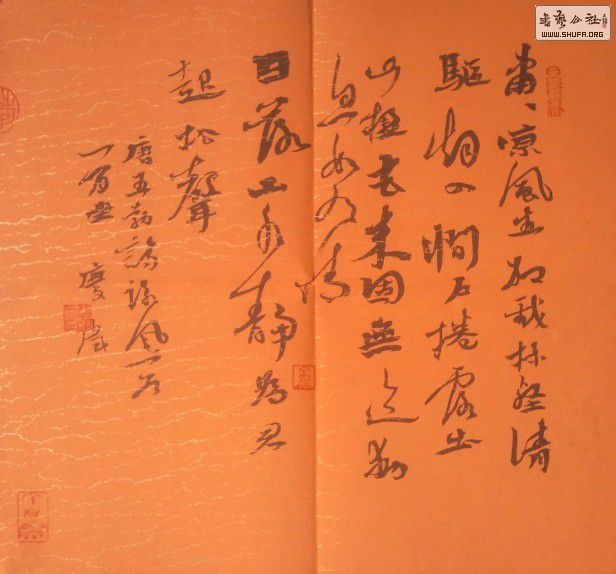 書藝公社
WWW.SHUFA.ORG
肅、涼風生加我林壑清
驅烟澗捲霧出
山楹去來固無迹動
息如有情
日落山水靜為君
起松聲
唐王勃詩詠風一首
慶